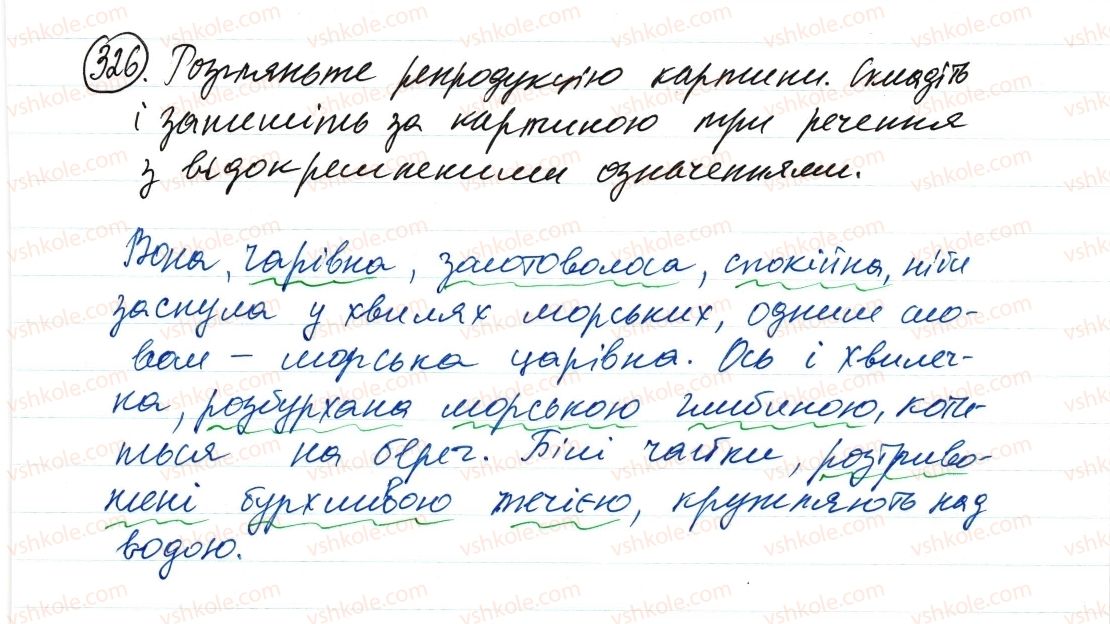 326. Розгляньте репродукцію картини. Складіть
і запишіть за картиною три речення
з відокремленими означеннями.
Вона, чарівна, золотоволоса, спокійна, ніби
заснула у хвилях морських, одним сло-
вом – морська царівна. Ось і хвилеч-
ка, розбурхана морською глибиною, коти-
ться на берег. Білі чайки, розтриво-
жені бурхливою течією, кружляють над
водою.
vshkole.com